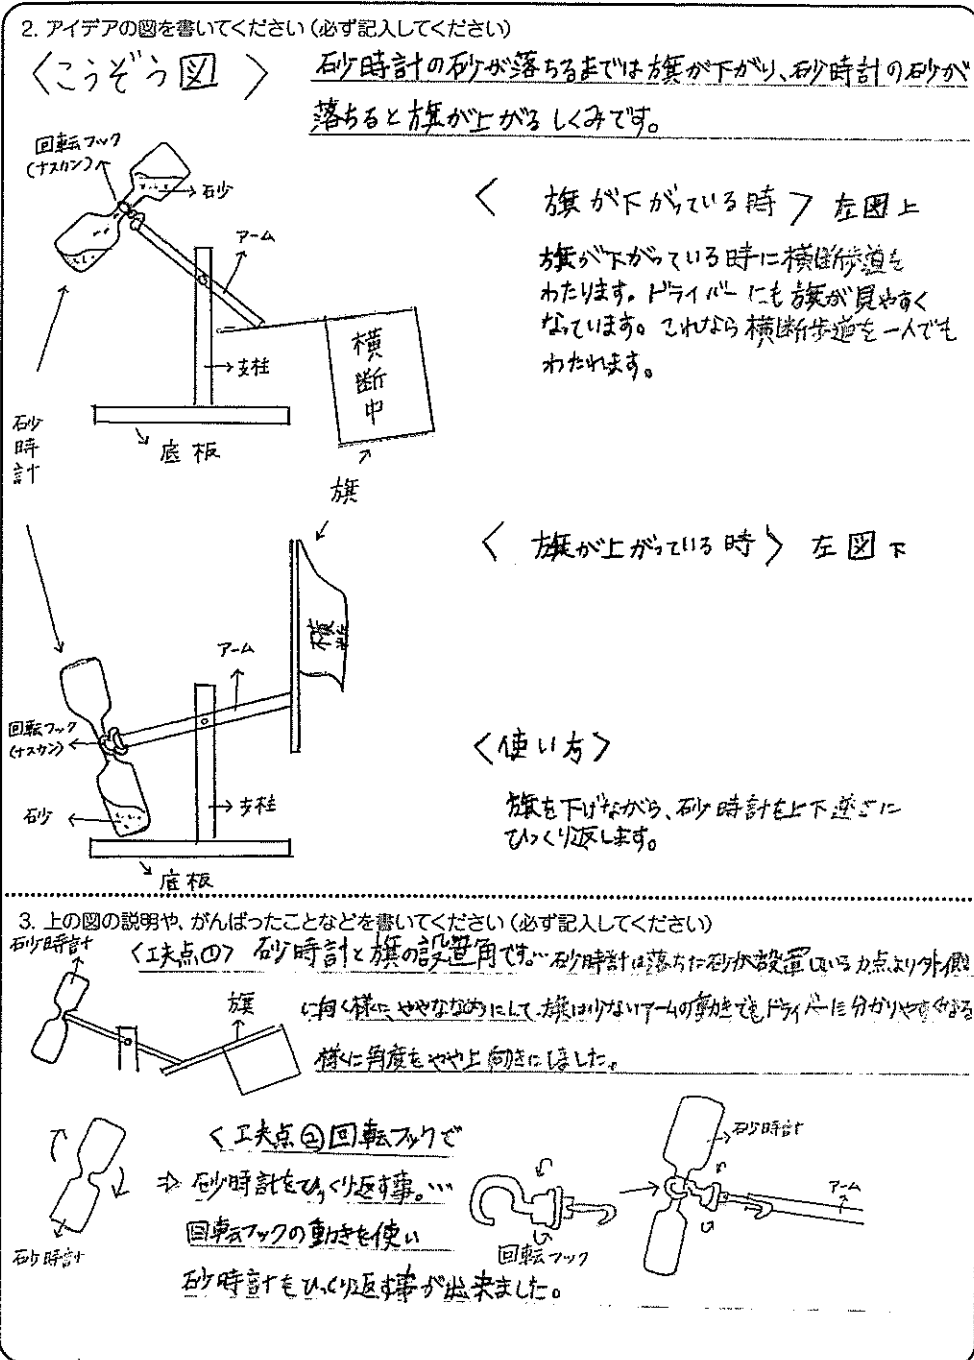 2. アイデアの図を書いてください(必ず記入してください)
〈こうぞう図〉
砂時計の砂が落ちるまでは旗が下がり、砂時計の砂が
落ちると旗が上がるしくみです。
回転フック
(ナスカン)
砂
アーム
支柱
横断中
底板
砂時計
旗
〈 旗が下がっている時 〉 左図上
旗が下がっている時に横断歩道を
わたります。ドライバーにも旗が見やすく
なっています。これなら横断歩道を一人でも
わたれます。
〈 旗が上がっている時 〉 左図下
アーム
横断
回転フック
(ナスカン)
砂
支柱
底板
〈使い方〉
旗を下げながら、砂時計を上下逆さに
ひっくり返します。
3. 上の図の説明や、がんばったことなどを書いてください(必ず記入してください)
砂時計
旗
〈工夫点①〉 砂時計と旗の設置角です。…砂時計は落ちた砂が設置している力点より外側
に向く様に、ややななめにして、旗は少ないアームの動きでもドライバーに分かりやすくなる
様に角度をやや上向きにしました。
砂時計
〈工夫点②〉回転フックで
⇒ 砂時計をひっくり返す事。…
回転フックの動きを使い
砂時計もひっくり返す事が出来ました。
回転フック
砂時計
アーム